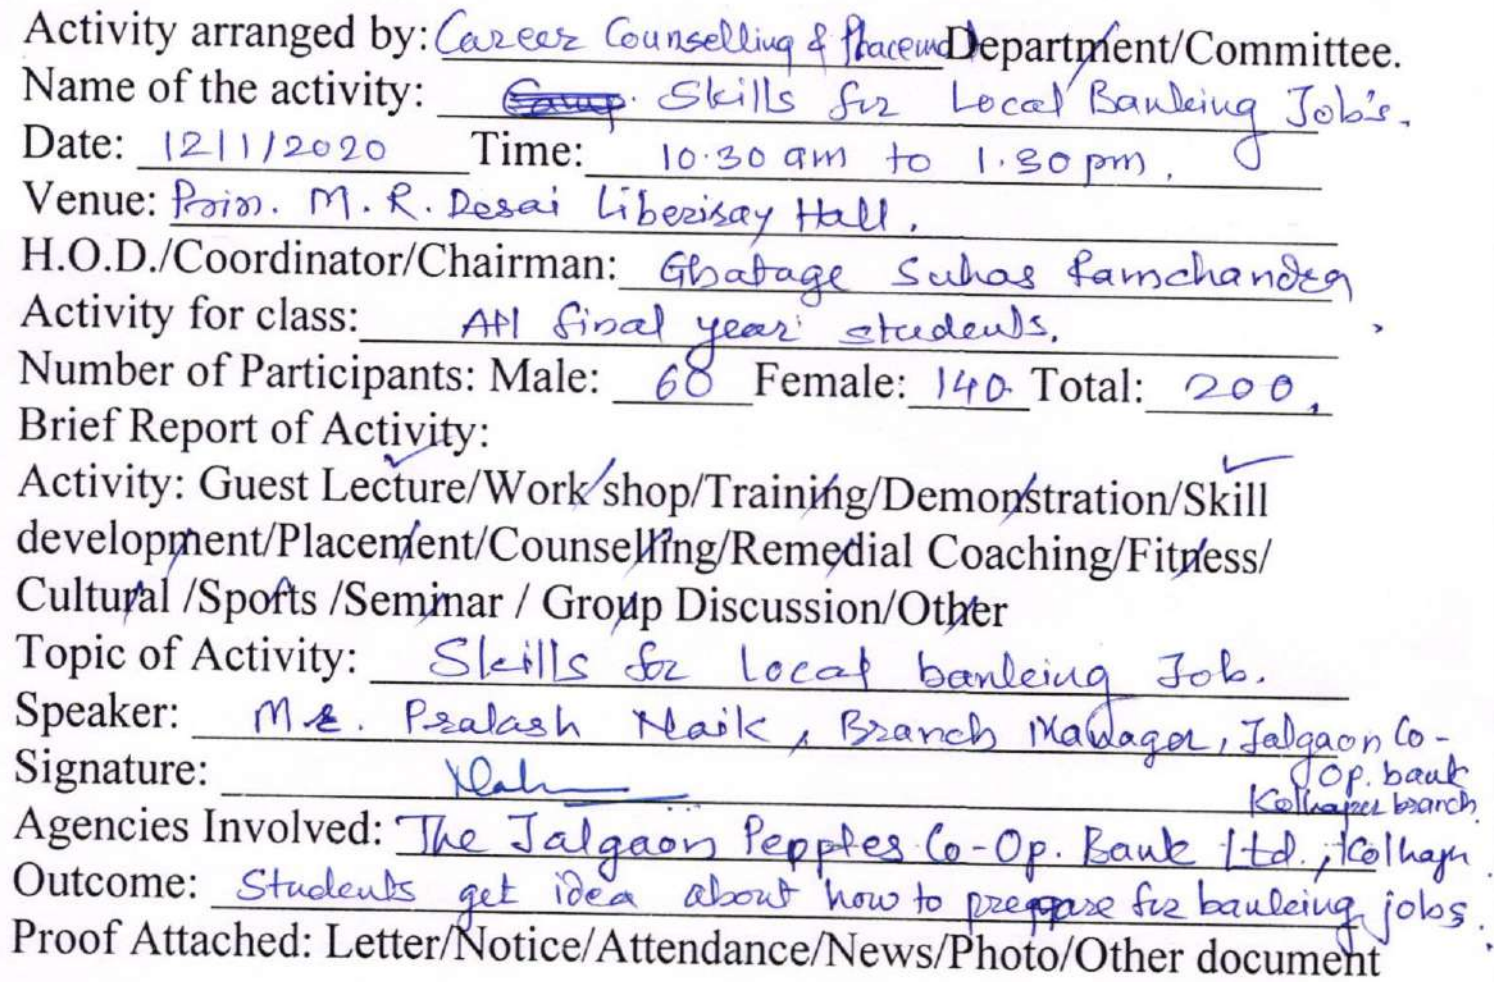 Activity arranged by: Career Counselling & Placement Department/Committee.
Name of the activity: Skills for Local Banking Job's.
Date: 12/1/2020 Time: 10.30 am to 1.30 pm.
Venue: Prin. M. R. Desai Liberisay Hall.
H.O.D./Coordinator/Chairman: Ghatage Suhas Ramchandra
Activity for class: All final year students.
Number of Participants: Male: 60 Female: 140 Total: 200.
Brief Report of Activity:
Activity: Guest Lecture/Work shop/Training/Demonstration/Skill
development/Placement/Counselling/Remedial Coaching/Fitness/
Cultural /Sports /Seminar / Group Discussion/Other
Topic of Activity: Skills for local banking Job.
Speaker: Mr. Pralash Naik, Branch Manager, Jalgaon Co-
Op. bank
Kolhapur branch.
Signature:
Agencies Involved: The Jalgaon Pepples Co-Op. Bank Ltd., Kolhapr.
Outcome: Students get idea about how to preppare for banking jobs.
Proof Attached: Letter/Notice/Attendance/News/Photo/Other document